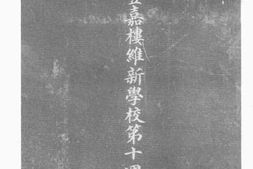 嘉樓維新學校第十週